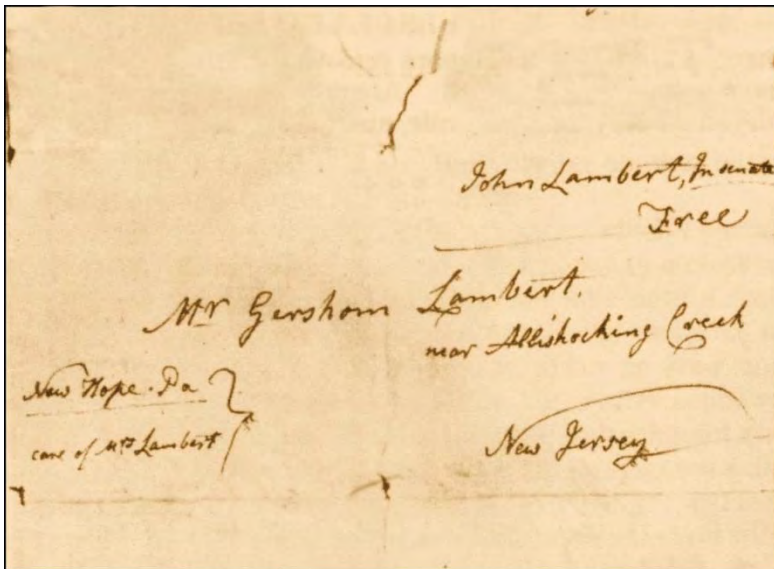 John Lambert, In senate
Free
Mr Gershom Lambert.
near Allishocking Creek
New Hope. Pa
care of Mrs Lambert
New Jersey